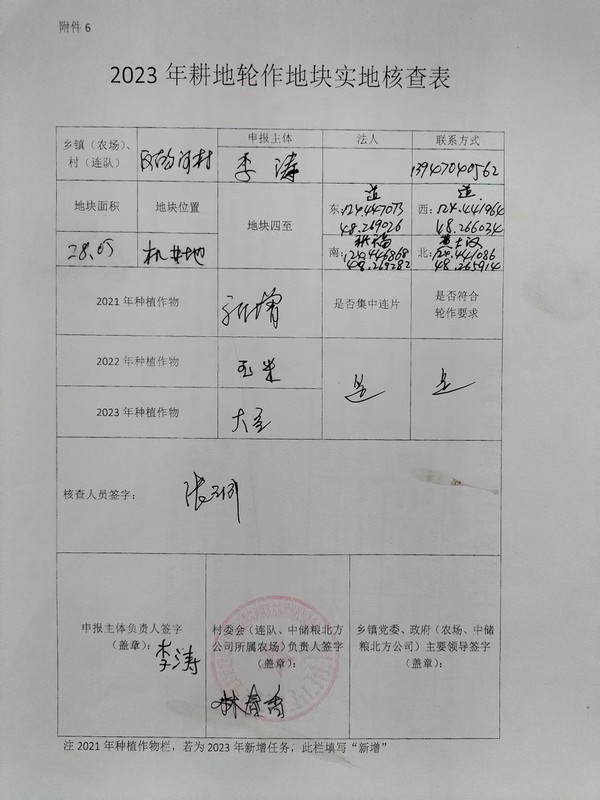 附件 6
2023 年耕地轮作地块实地核查表
乡镇（农场）、
村（连队）
河村
申报主体
李涛
法人
联系方式
13947040562
地块面积
地块位置
地块四至
道
东:124.447073
48.269026
道
西:124.441964
48.266034
28.05
机井地
南:124.446868
48.269282
北:124.441086
48.265914
2021 年种植作物
新增
是否集中连片
是否符合
轮作要求
2022 年种植作物
玉米
是
是
2023 年种植作物
大豆
核查人员签字：
张
申报主体负责人签字
（盖章）：
李涛
村委会（连队、中储粮北方
公司所属农场）负责人签字
（盖章）：
林
乡镇党委、政府（农场、中储
粮北方公司）主要领导签字
（盖章）：
注 2021 年种植作物栏，若为 2023 年新增任务，此栏填写“新增”